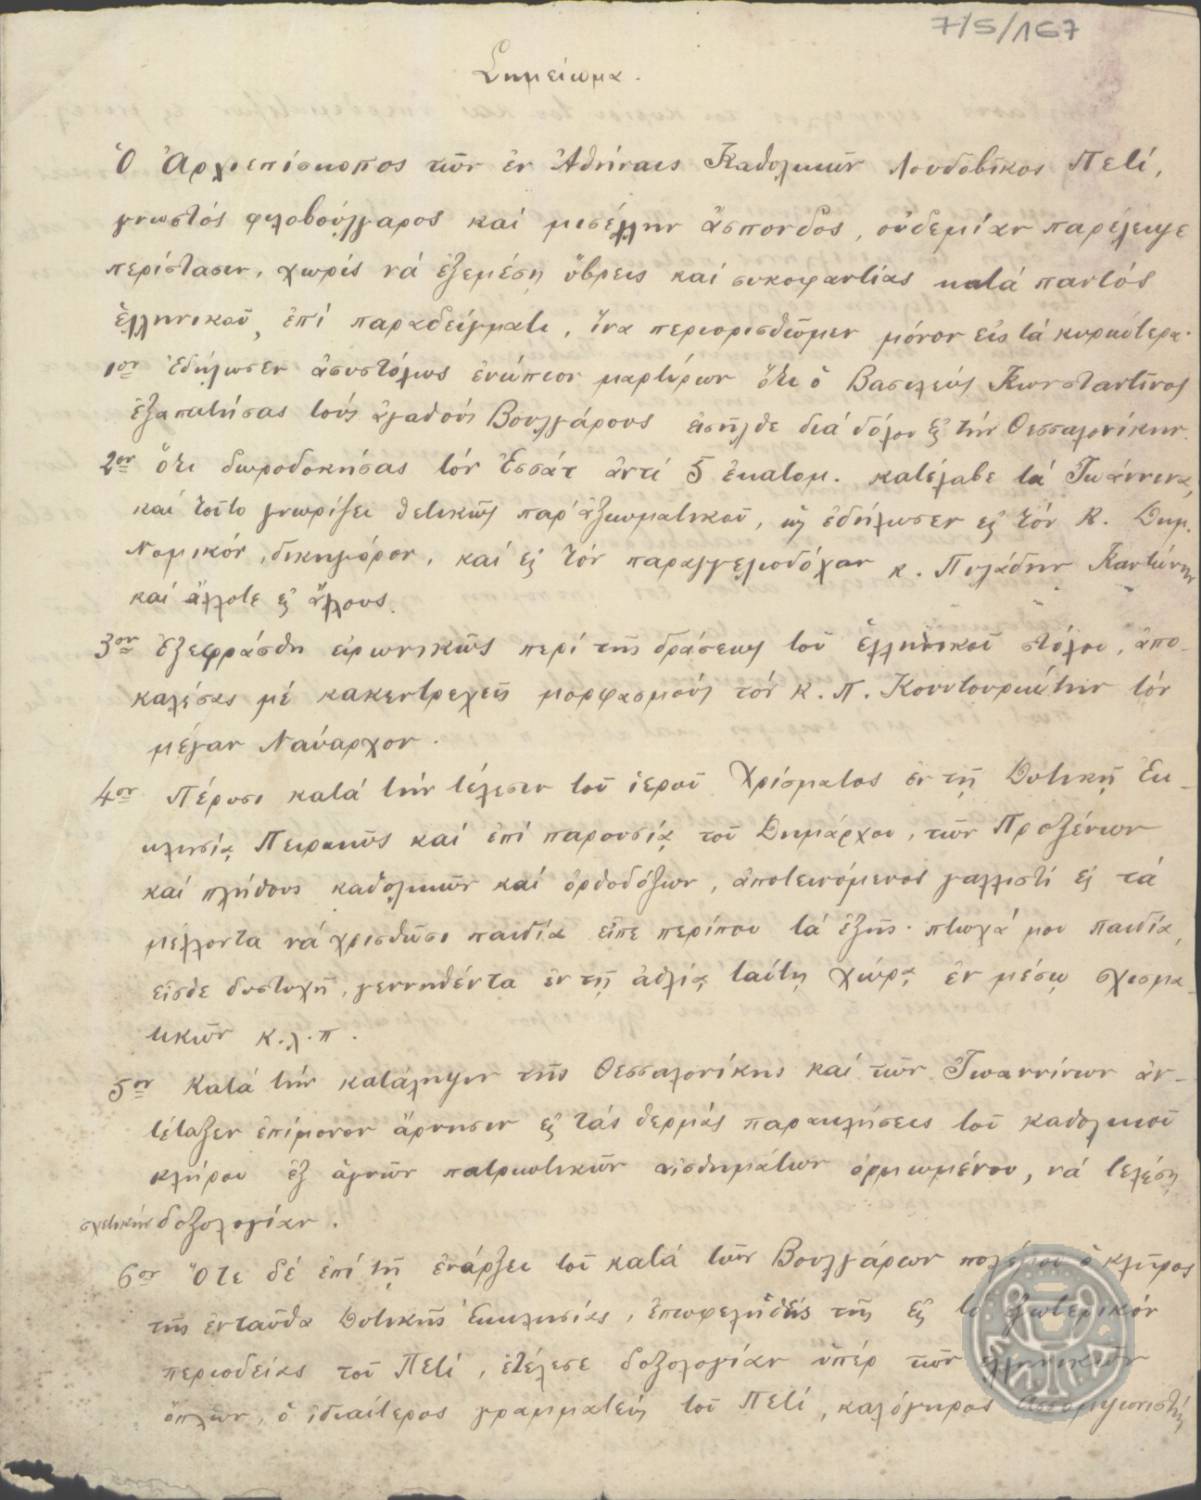 7/5/167
Σημείωμα.
Ὁ Ἀρχιεπίσκοπος τῶν ἐν Ἀθήναις Καθολικῶν Λουδοβῖκος Πετί,
γνωστός φιλοβούλγαρος καί μισέλλην ἄσπονδος, οὐδεμίαν παρέλειψε
περίστασιν, χωρίς νά ἐξεμέσῃ ὕβρεις καί συκοφαντίας κατά παντός
ἑλληνικοῦ, ἐπί παραδείγματι, ἵνα περιορισθῶμεν μόνον εἰς τά κυριώτερα.
1ον ἐδήλωσεν ἀσυστόλως ἐνώπιον μαρτύρων ὅτι ὁ Βασιλεύς Κωνσταντῖνος
ἐξαπατήσας τούς ἀγαθούς Βουλγάρους εἰσῆλθε διά δόλου εἰς τήν Θεσσαλονίκην.
2ον ὅτι δωροδοκήσας τόν Ἐσσάτ ἀντί 5 ἑκατομ. κατέλαβε τά Ἰωάννινα,
καί τοῦτο γνωρίζει θετικῶς παρ' ἀξιωματικοῦ, ὡς ἐδήλωσεν εἰς τόν κ. Δημ.
Νομικόν, δικηγόρον, καί εἰς τόν παραγγελιοδόχον κ. Πυλάδην
καί ἄλλοτε εἰς ἄλλους.
3ον ἐξεφράσθη εἰρωνικῶς περί τῆς δράσεως τοῦ ἑλληνικοῦ στόλου, ἀπο-
καλέσας μέ κακεντρεχεῖς μορφασμούς τόν κ. Π. Κουντουριώτην τόν
μέγαν Ναύαρχον.
4ον Πέρυσι κατά τήν τέλεσιν τοῦ ἱεροῦ Χρίσματος ἐν τῇ Δυτικῇ Ἐκ-
κλησίᾳ Πειραιῶς καί ἐπί παρουσίᾳ τοῦ Δημάρχου, τῶν Προξένων
καί πλήθους καθολικῶν καί ὀρθοδόξων, ἀποτεινόμενος γαλλιστί εἰς τά
μέλλοντα νά χρισθῶσι παιδία εἶπε περίπου τά ἑξῆς· πτωχά μου παιδία,
εἶσθε δυστυχῆ, γεννηθέντα ἐν τῇ ἀθλίᾳ ταύτῃ χώρᾳ ἐν μέσῳ σχισμα-
τικῶν κ.λ.π.
5ον Κατά τήν κατάληψιν τῆς Θεσσαλονίκης καί τῶν Ἰωαννίνων ἀν-
τέταξεν ἐπίμονον ἄρνησιν εἰς τάς θερμάς παρακλήσεις τοῦ καθολικοῦ
κλήρου ἐξ ἁγνῶν πατριωτικῶν αἰσθημάτων ὁρμωμένου, νά τελέσῃ
σχετικήν δοξολογίαν.
6ον Ὅτε δέ ἐπί τῇ ἐνάρξει τοῦ κατά τῶν Βουλγάρων πολέμου ὁ κλῆρος
τῆς ἐνταῦθα Δυτικῆς Ἐκκλησίας, ἐπωφεληθείς τῆς εἰς τό ἐξωτερικόν
περιοδείας τοῦ Πετί, ἐτέλεσε δοξολογίαν ὑπέρ τῶν ἑλληνικῶν
ὅπλων, ὁ ἰδιαίτερος γραμματεύς τοῦ Πετί, καλόγηρος